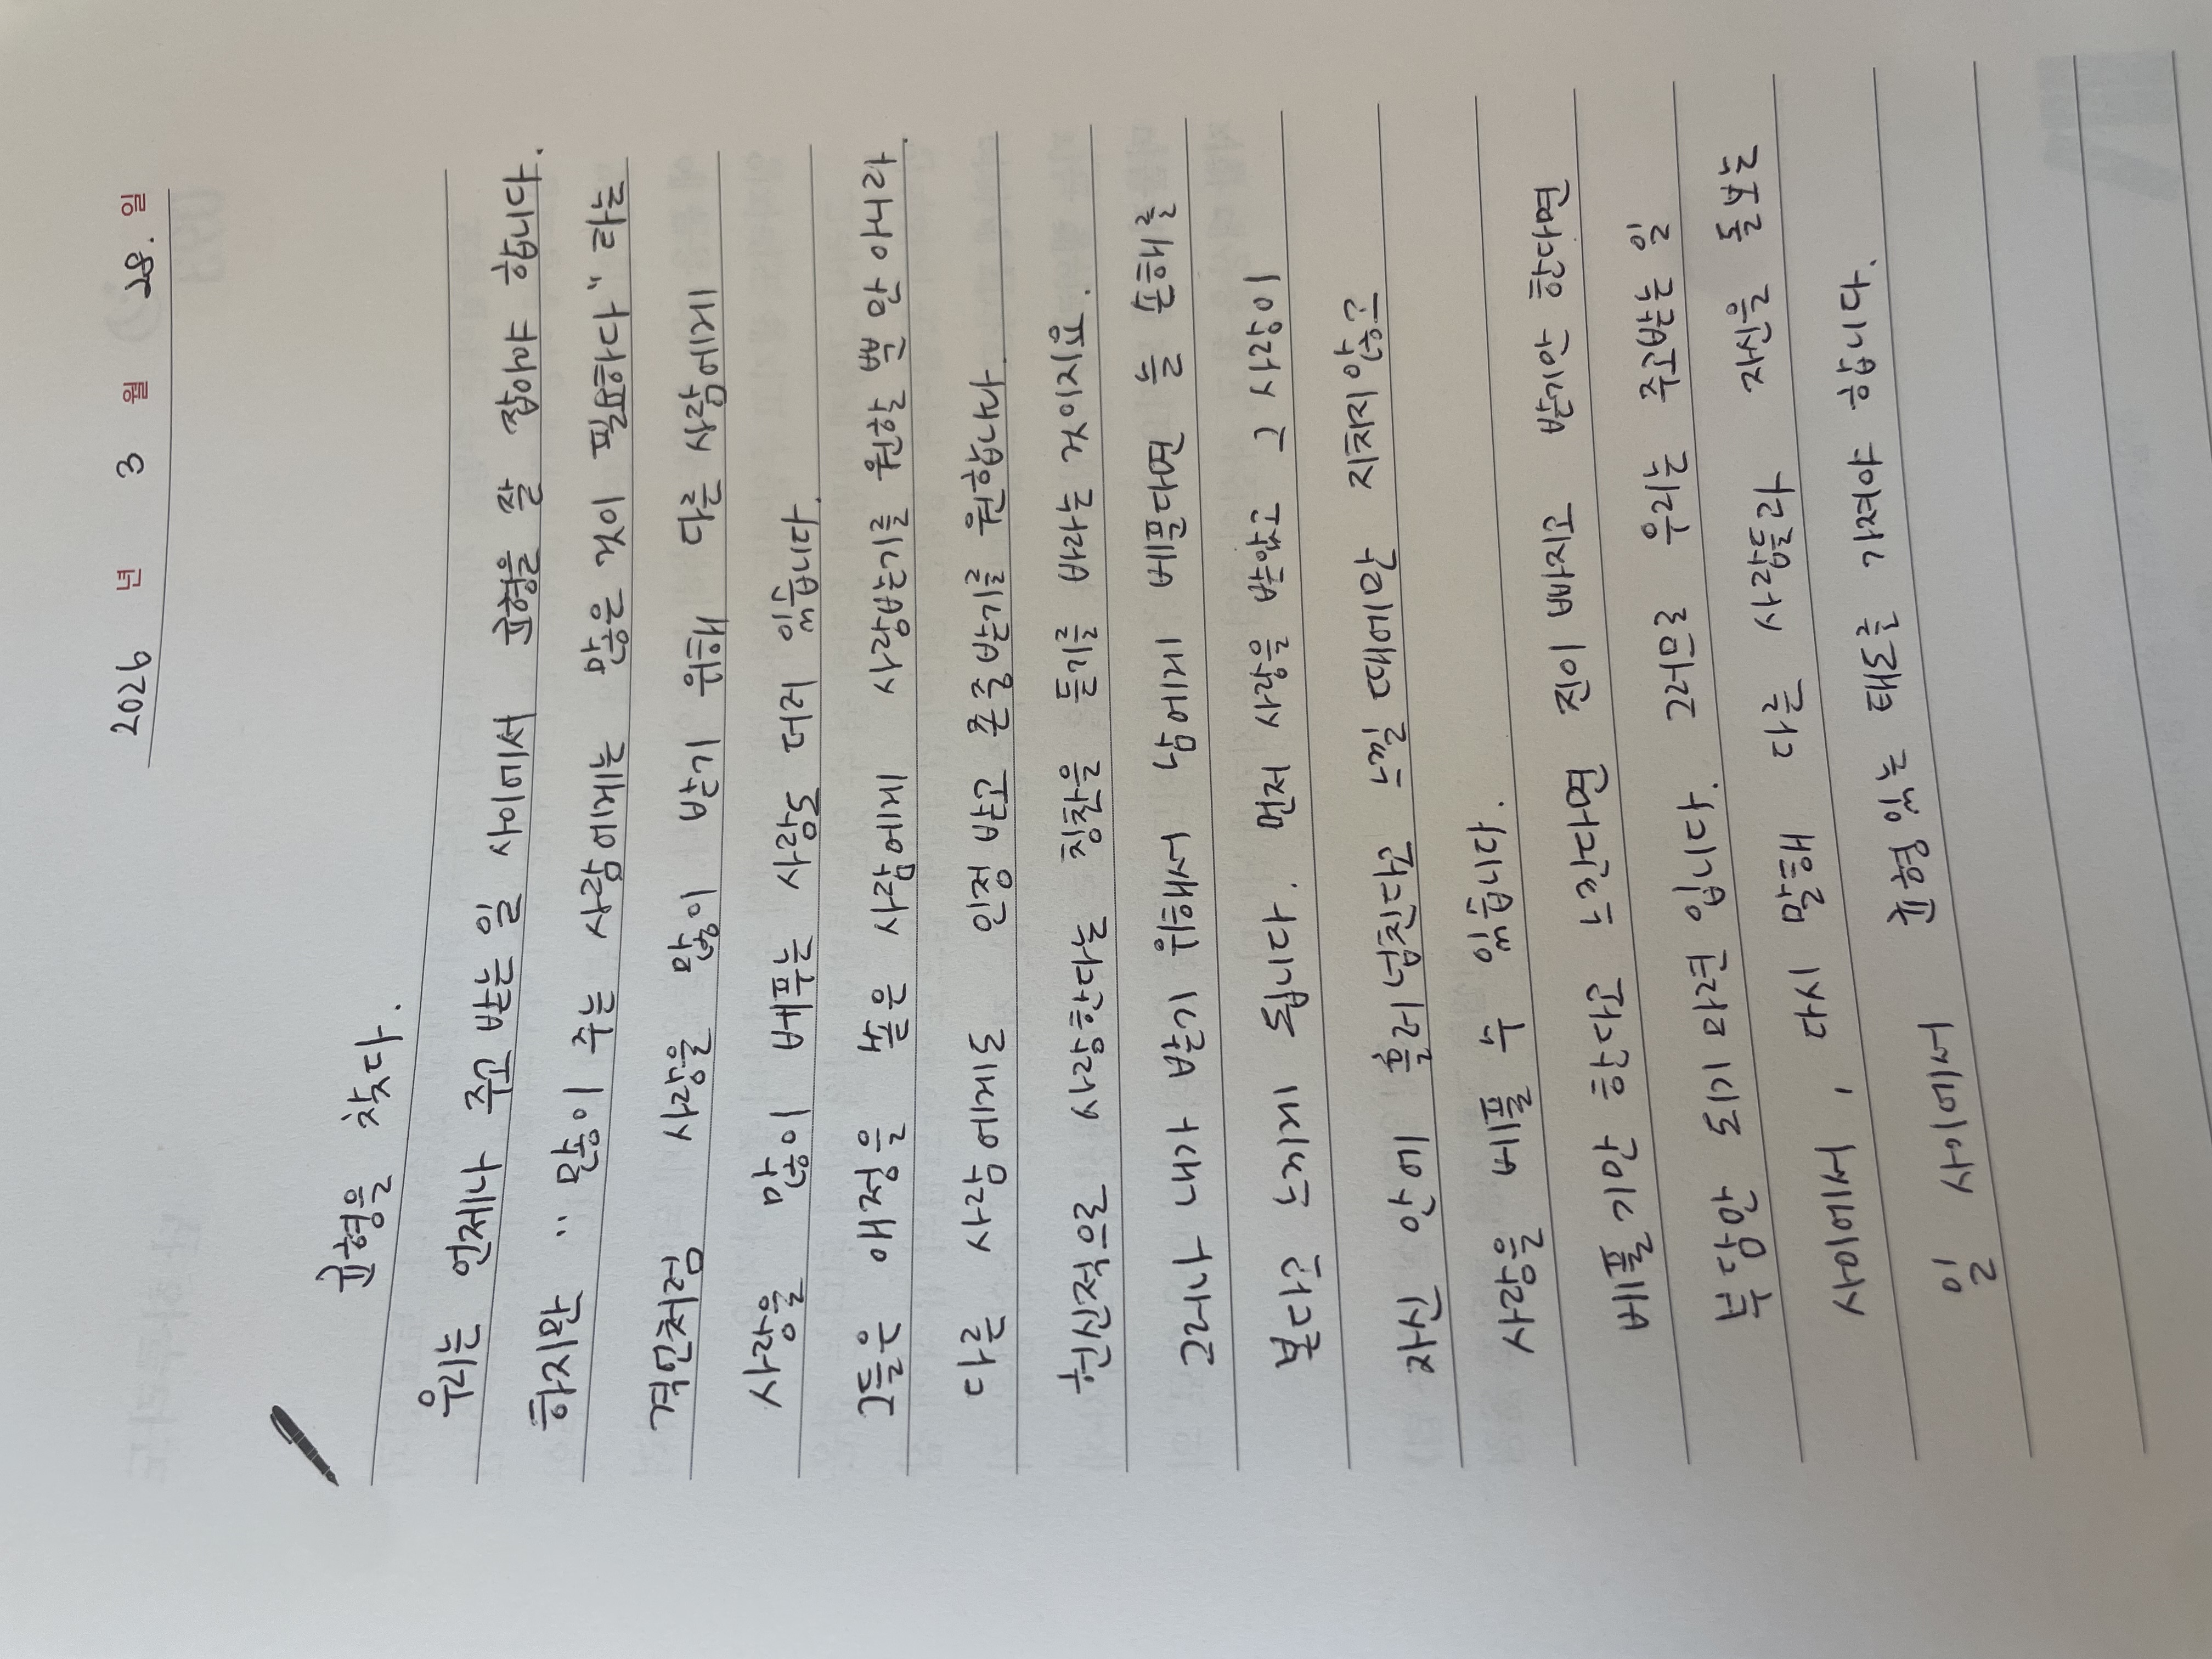 2026 년 3 월 28. 일
균형을 찾다.
우리는 언제나 주고 받는 일 사이에서 균형을 잘 잡아야 합니다.
하지만 " 많이 주는 사람에게는 많은 것이 필요하다" 라는
격언처럼 사랑을 많이 받기 위해 다른 사람에게
사랑을 많이 베푸는 사람도 더러 있습니다.
그들은 애정을 쏟은 사람에게 사랑받기를 원할 뿐 아니라
다른 사람에게도 인정 받고 존중받기를 원합니다.
헌신적으로 사랑한다는 칭찬을 듣기를 바라는 것이지요.
그러나 내가 받기 위해서 남에게 베푼다면 늘 손해를
본다고 느끼게 됩니다. 먼저 사랑을 받았고 그 사랑이
자신 안에 흘러넘친다고 느낄 때에만 지치지 않고
사랑을 베풀 수 있습니다.
베풀기만 한다고 느낀다면 진이 빠지고 받기만 한다면
부담만 되기 마련 입니다. 그러므로 우리는 주고받는 일
사이에서, 다시 말해 다른 사람들과 자신을 돌보는
일 사이에서 균형 있는 태도를 가져야 합니다.